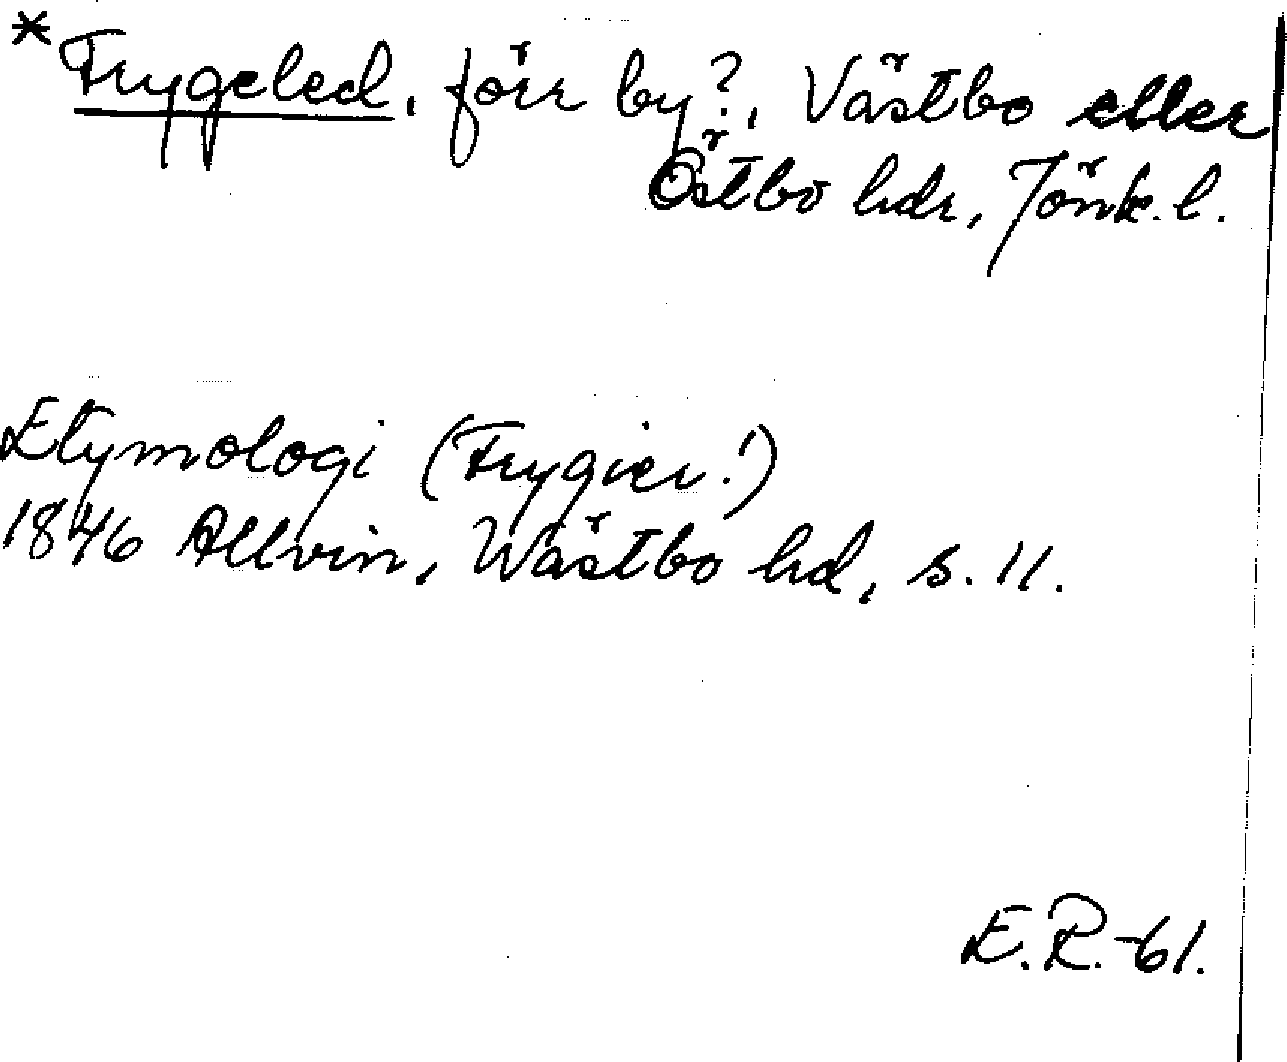 *Frygeled, förr by?, Västbo eller
Östbo hdr, Jönk. l.
Etymologi (Frygier!)
1846 Allvin, Wästbo hd, s. 11.
E.R.-61.